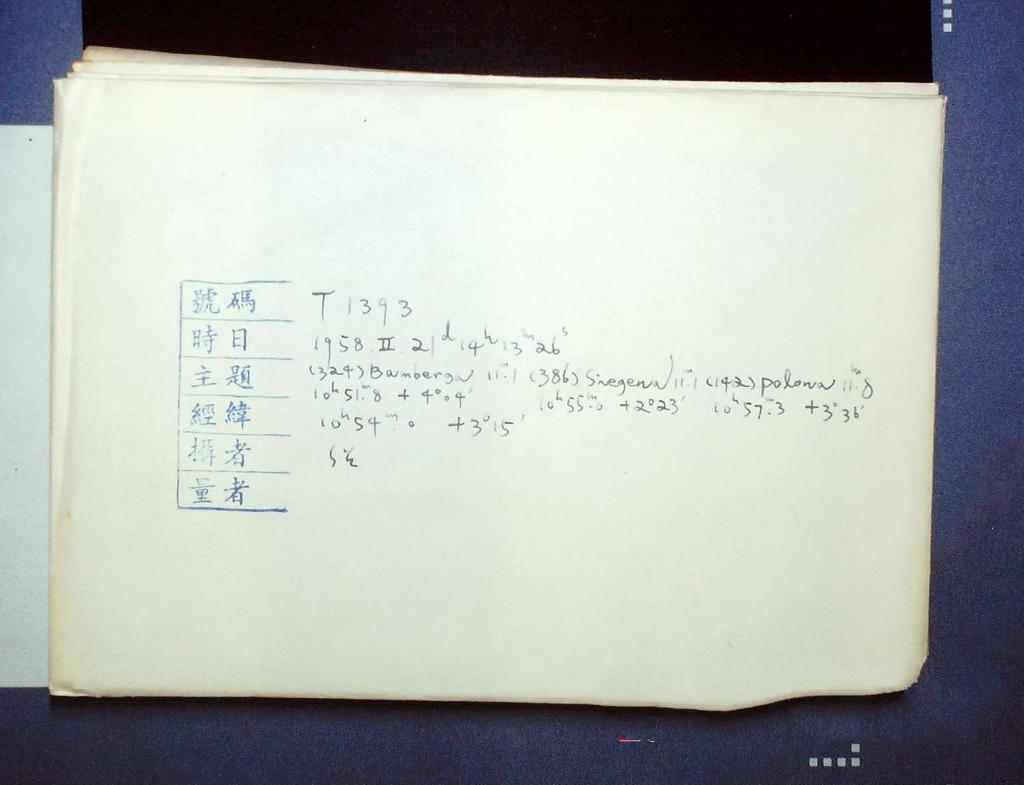 號碼 T 1393
時日 1958. II. 21ᵈ 14ʰ 13ᵐ 26ˢ
主題 (324) Bamberga 11ᵐ.1 (386) Siegena 11ᵐ.1 (142) polona 11ᵐ.8
10ʰ51ᵐ.8 + 4°04′ 10ʰ55ᵐ.0 + 2°23′ 10ʰ57ᵐ.3 + 3°36′
經緯 10ʰ54ᵐ.0 + 3°15′
攝者
量者